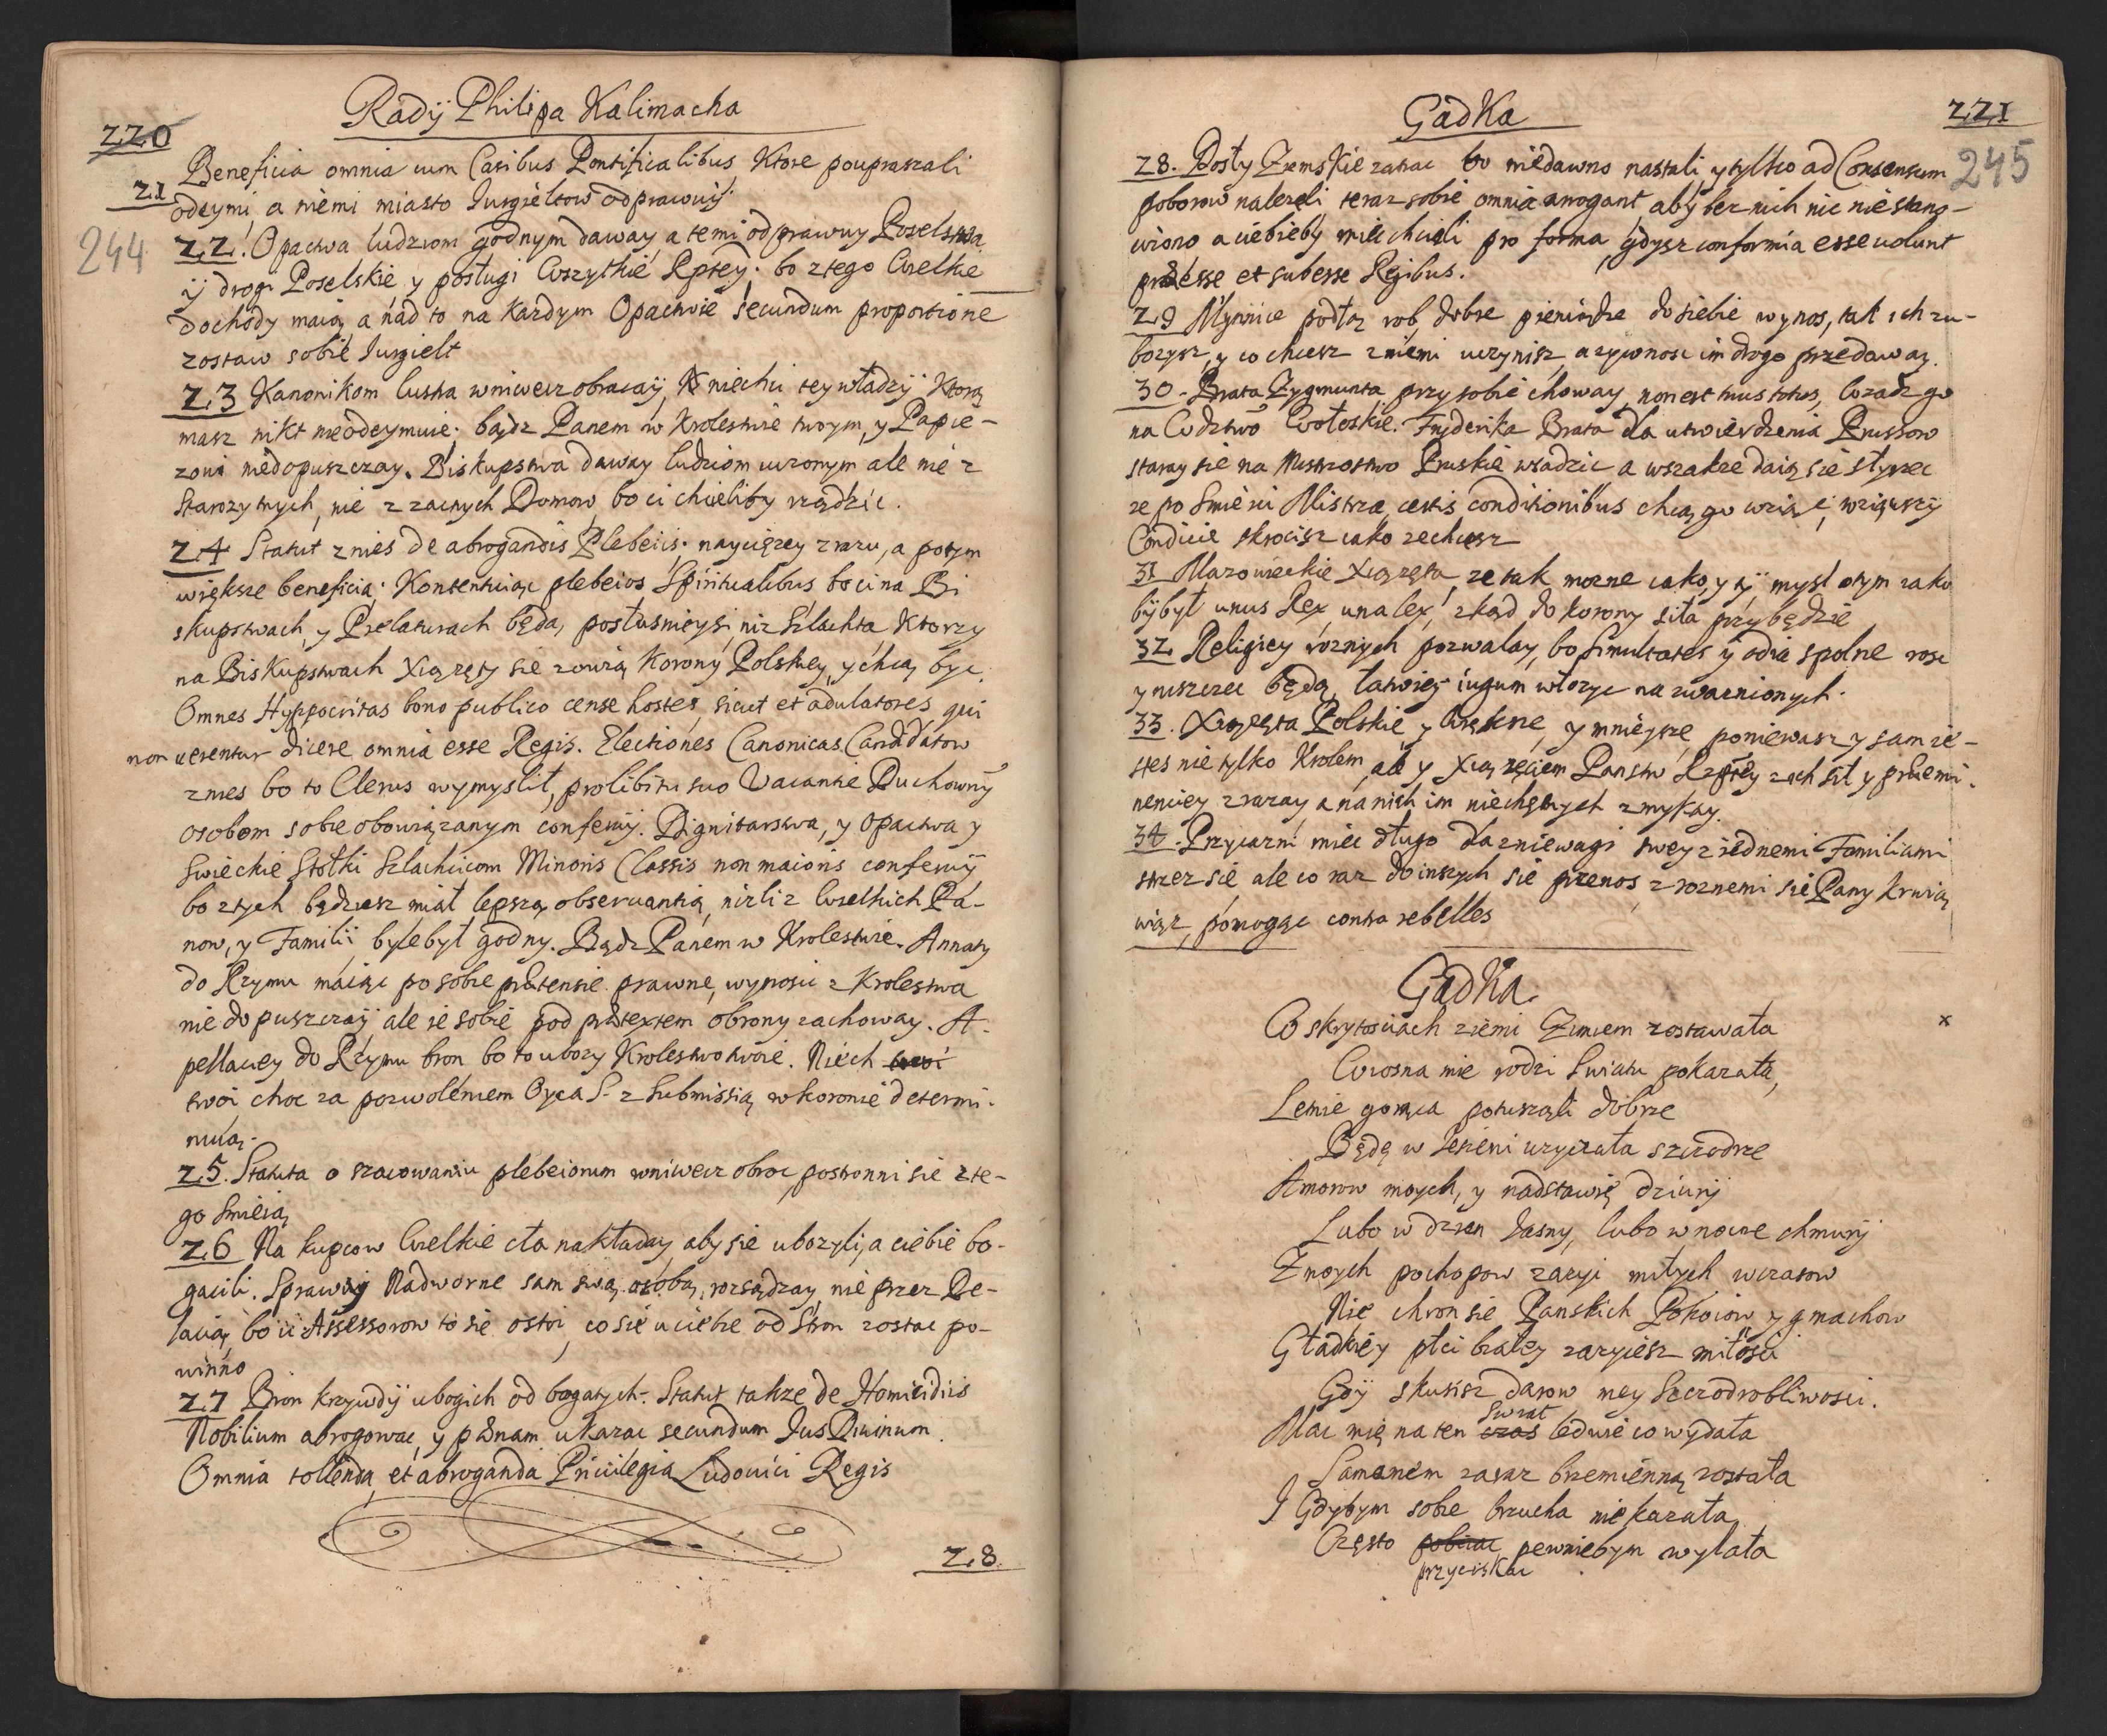 Radÿ Philipa Kalimacha
220
Beneficia omnia cum Casibus Pontificalibus, Ktore poupraszali
21 odeymi, a niemi miasto Iurgieltow odprawuÿ
244
22. Opactwa ludziom godnym daway, a temi odprawuy Poselstwa
ÿ drogi Poselskie y posługi Wszytkie Rptey: bo z tego Wielkie
dochody maią, a nad to na Kazdym Opactwie secundum proportione
zostaw sobie Iurgielt
23 Kanonikom lustra wniwecz obracaÿ, niechći tey władzÿ Ktorą
masz nikt nieodeymuie: bądz Panem w Krolestwie twoym, y Papie-
zowi niedopuszczay. Biskupstwa daway ludziom uczonym ale nie z
Starozytnych, nie z zacnych Domow, bo ci chcieliby rządzic.
24 Statut znies de abrogandis Plebeiis: naycięzey zrazu, a potym
większe beneficia: Kontentuiąc plebeios Spiritualibus bo ci na Bi
skupstwach, y Prelaturach będą, posłusnieysi, niz Szlachta Ktorzy
na Biskupstwach Xiązęty sie zowią Korony Polskiey, y chcą byc.
Omnes Hyppocritas bono publico cense hostes, sicut et adulatores qui
non verentur dicere omnia esse Regis. Electiones Canonicas Candidatow
znies bo to Clerus wymyslił, pro libitu suo Vacantie Duchownÿ
osobom sobie obowiązanym conferuÿ. Dignitarstwa, y Opactwa y
Swieckie Stołki Szlachcicom Minoris Classis non maioris conferuÿ
bo z tych będziesz miał lepszą observantią, nizli z Wielkich Pa-
now, y Familii, byle był godny. Bądz Panem w Krolestwie. Annaty
do Rzymu maiąc po sobie prætensie prawne, wynosic z Krolestwa
nie dopuszczaÿ ale ie sobie pod prætextem obrony zachoway. A-
pellacyey do Rzymu bron bo to ubozy Krolestwo twoie. Niech twoi
twoi, choc za pozwoleniem Oyca S. z Submissią w koronie determi-
nuią.
25. Statuta o szacowaniu plebeiorum wniwecz obroc, postronni sie z te-
go smieią
26 Na kupcow Wielkie cła nakładay aby sie ubozyli, a ciebie bo-
gacili. Sprawÿ Nadworne sam swą osobą, rozsądzay, nie przez De-
lacią, bo u Assessorow to sie ostoi, co sie u ciebie od Stron zostac po-
winno
27 Bron krzywdÿ ubogich od bogatych. Statut takze de Homicidiis
Nobilium abrogowac, y pænam ukazac secundum Ius Divinum.
Omnia tollenda, et abroganda Privilegia Ludovici Regis
28.
Gadka
221
245
28. Posły Ziemskie zatrac bo niedawno nastali, y tylko ad Consensum
poborow nalezeli, teraz sobie omnia arrogant, aby bez nich nic nie stano-
wiono a ciebieby miec chcieli pro forma, gdysz conformia esse volunt
præesse et subesse Regibus.
29 Mynnice podłą rob, dobre pieniądze do siebie wynos, tak ich zu-
bozysz, y co chcesz z niemi uczynisz, a zywnosc im drogo przedaway.
30. Brata Zygmunta przy sobie choway, non est tuus totus, wsadz go
na Wdztwo Wołoskie. Fryderika Brata dla utwierdzenia Prussow
staray sie na Mistrostwo Pruskie wsadzic a wszakze daią sie słyszec
ze po Smierci Mistrza, certis conditionibus chcą go wziąc, wziąwszÿ
Condicie skrocisz iako zechcesz
31 Mazowieckie Xiązęta, ze tak mozne iako y tÿ, mysl o tym iako
bÿ był unus Rex, una lex, zkąd do korony siła przybędzie
32 Religiey roznych pozwalay, bo Simultates y odia spolne rosc
y niszczec będą, łatwiey iugum włozyc na zwasnionych.
33. Xiązęta Polskie y Większe, y mnieysze, poniewasz y sam ie-
stes nie tylko Krolem, ale y Xiązęciem Panstw Rzptey z ich sił y præemi-
nenciey zrazay a na nich im niechętnych zmykay.
34. Przyiazni miec długo dla zniewagi swey z iednemi Familiami
strzez sie, ale co raz do inszych sie przenos, z roznemi sie Pany krwią
wiąz, pomogąc contra rebelles
Gadka.
W skrytosciach ziemi Zimem zostawała x
Wiosna mie rodzi Swiatu pokazała,
Lecie gorąca potuszą dobrze
Będę w Iesieni uzyczała szczodrze
Amorow moych, y nadstawię dziurÿ
Lubo w dzien Iasny, lubo w nocne chmurÿ
Z moych pochopow zazyi miłych wczasow
Nie chron sie Panskich Pokoiow y gmachow
Gładkiey płci białey zazyiesz miłosci
Gdÿ skusisz darow mey Szczodrobliwosci.
Mac mię na ten czas Swiat ledwie co wydała
Samanem zaraz brzemienną została
I Gdybym sobie brzucha nie kazała
Często pobiiac pewniebym wylała
przyciskac